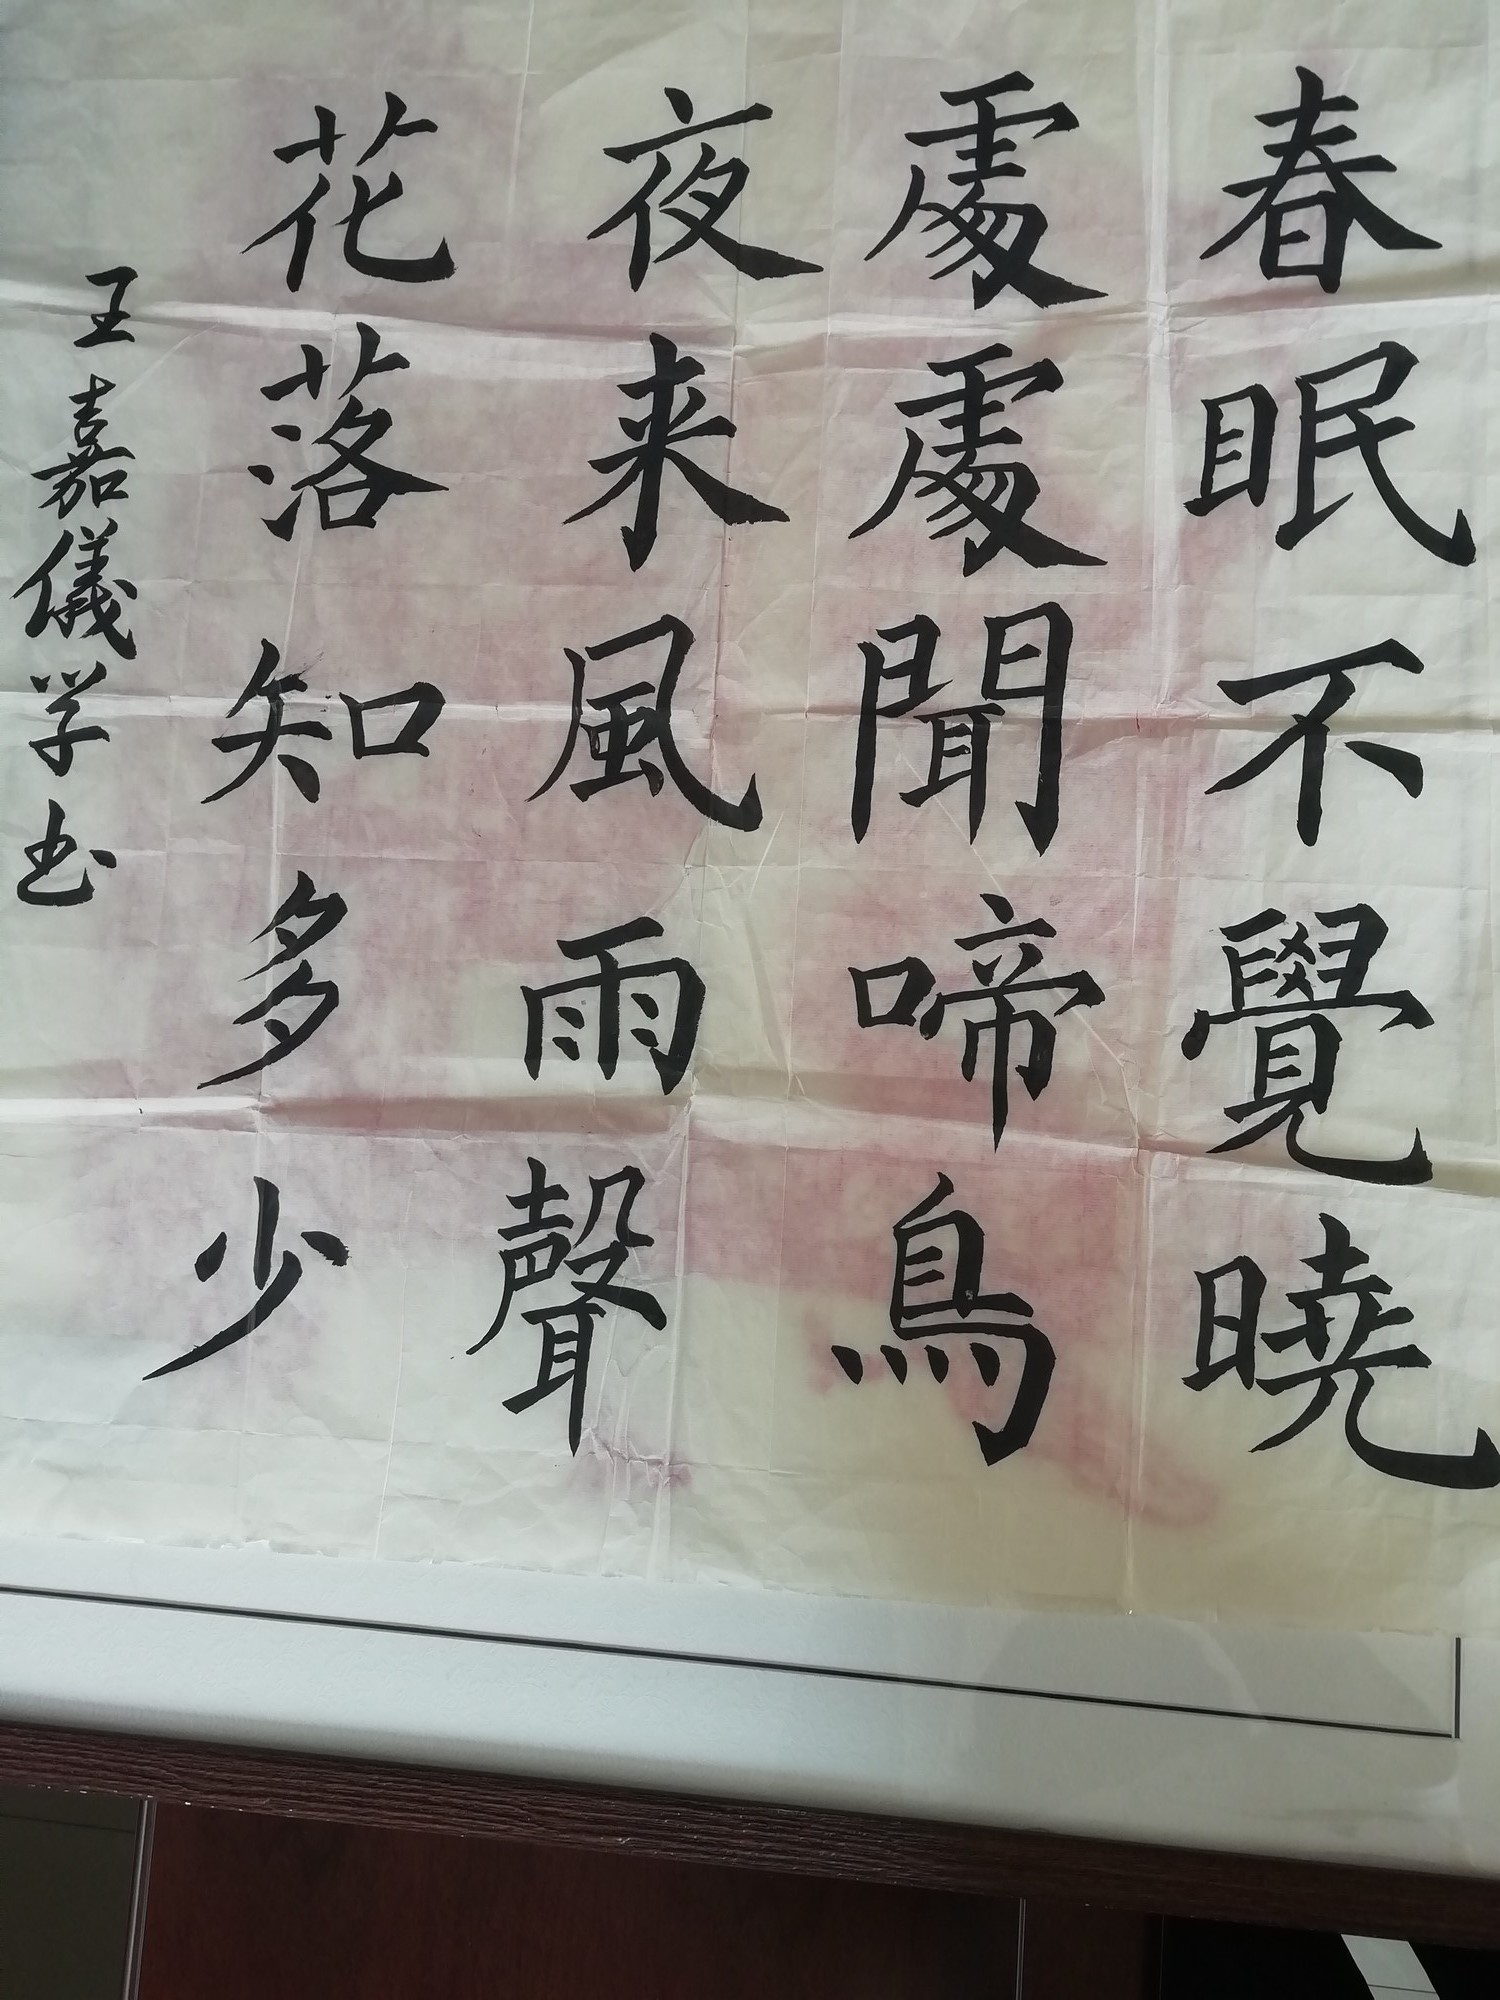 春眠不覺曉
處處聞啼鳥
夜来風雨聲
花落知多少
王嘉儀学书